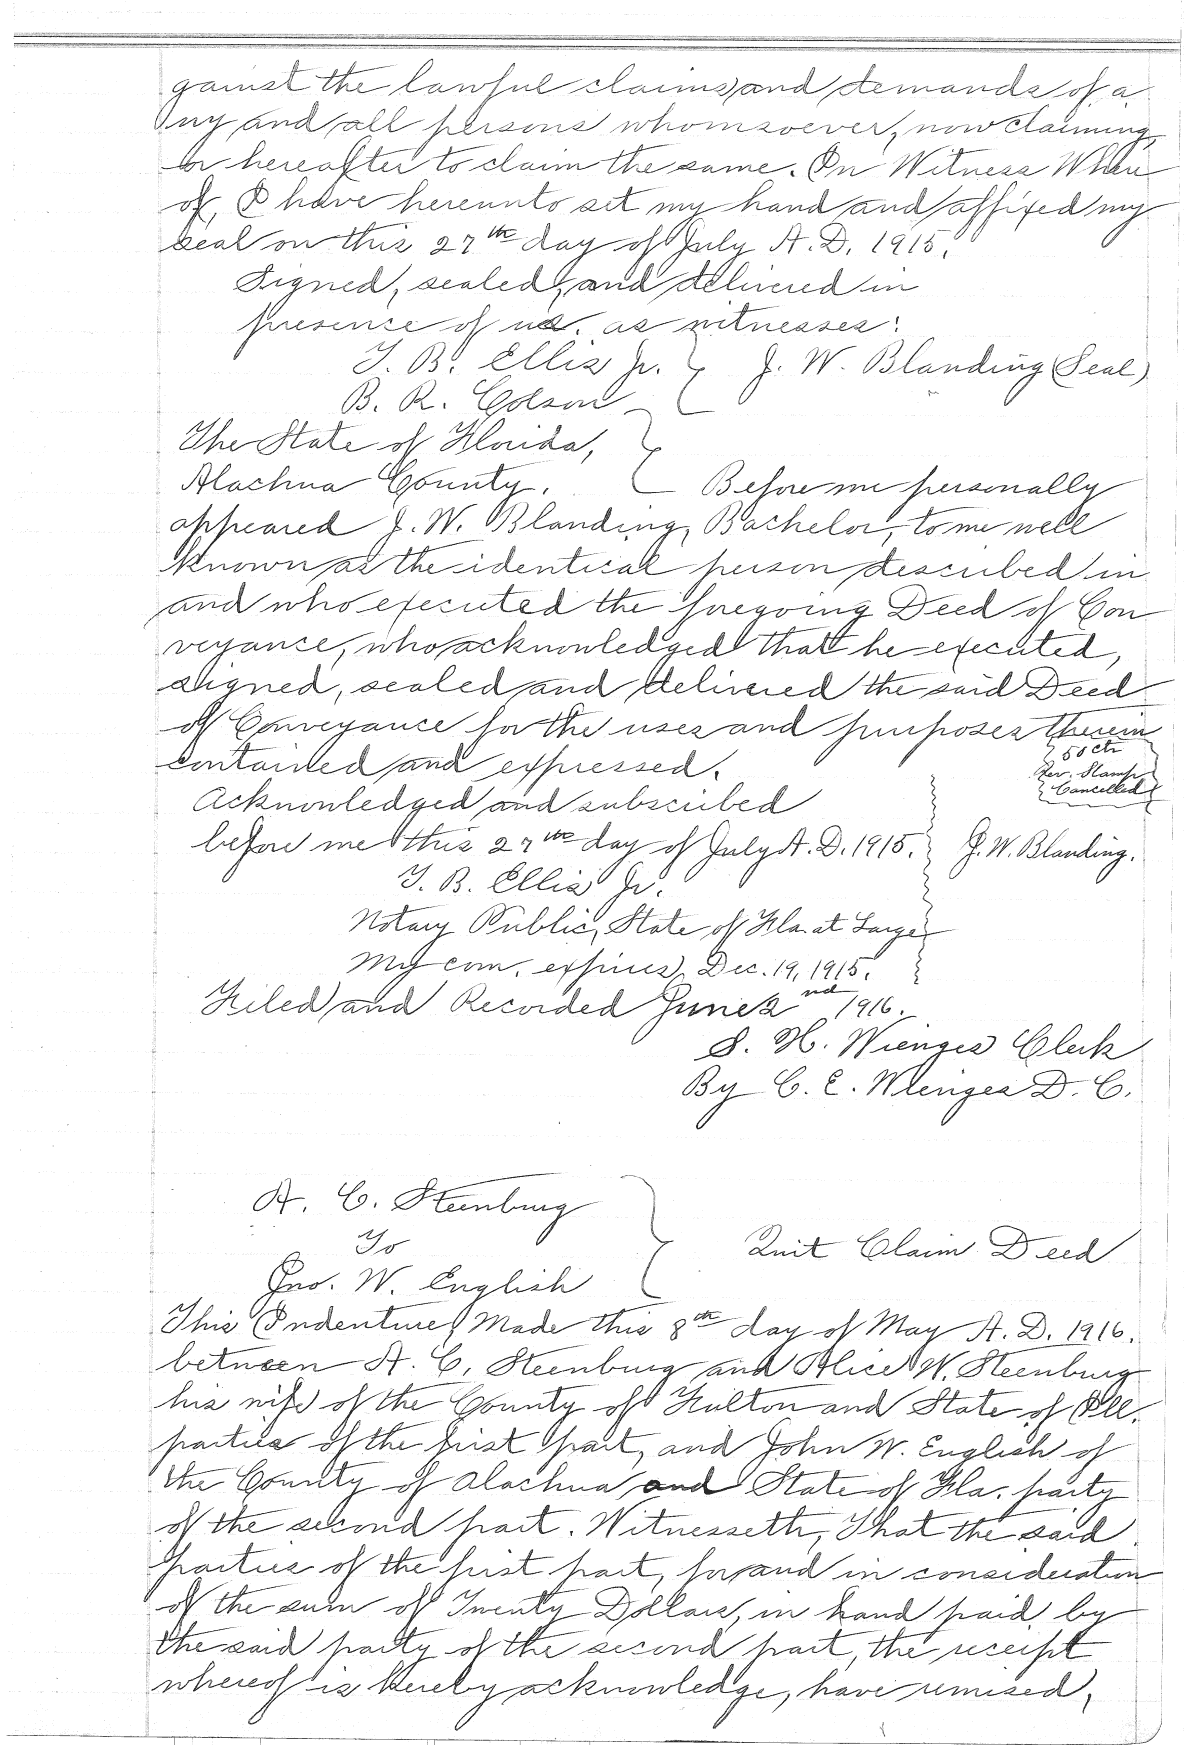 gainst the lawful claims and demands of a
ny and all persons whomsoever, now claiming
or hereafter to claim the same. In Witness Where
of, I have hereunto set my hand and affixed my
seal on this 27th day of July A.D. 1915.
Signed, sealed, and delivered in
presence of us. as witnesses:
T. B. Ellis Jr. J. W. Blanding (Seal)
B. R. Colson
The State of Florida,
Alachua County. Before me personally
appeared J. W. Blanding, Bachelor, to me well
known as the identical person described in
and who executed the foregoing Deed of Con
veyance, who acknowledged that he executed,
signed, sealed and delivered the said Deed
of Conveyance for the uses and purposes therein
contained and expressed.
50 cts
Rev. Stamps
Cancelled
Acknowledged and subscribed
before me this 27th day of July A.D. 1915. J. W. Blanding.
T. B. Ellis Jr.
Notary Public, State of Fla. at Large
My com. expires Dec. 19, 1915.
Filed and Recorded June 2nd 1916.
S. H. Wienges Clerk
By C. E. Wienges D. C.
A. C. Steenburg
To Quit Claim Deed
Jno. W. English
This Indenture, Made this 8th day of May A. D. 1916.
between A. C. Steenburg and Alice W. Steenburg
his wife of the County of Fulton and State of Ill.
parties of the first part, and John W. English of
the County of Alachua and State of Fla. party
of the second part. Witnesseth, That the said
parties of the first part, for and in consideration
of the sum of Twenty Dollars, in hand paid by
the said party of the second part, the receipt
whereof is hereby acknowledge, have remised,